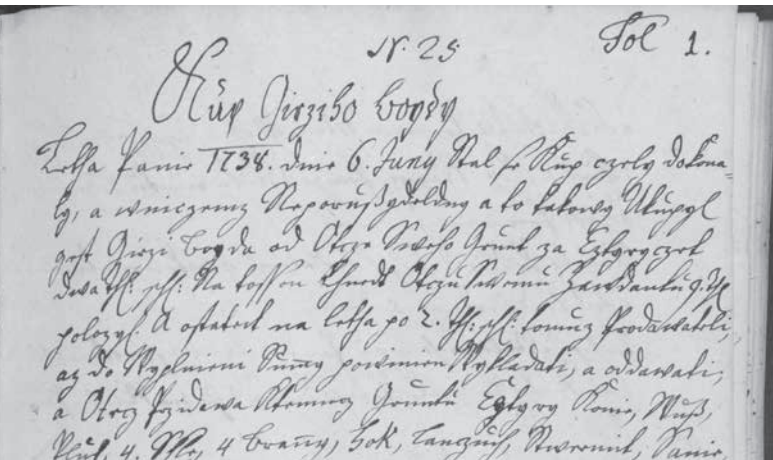 N. 25 Fol 1.
Kup Girziho Boydy
Letha Panie 1738. dnie 6. Juny Stal se Kup czely dokona-
ly, a wniczemz Neporußydedlny a to takowy Ukupyl
gest Girzi Boyda od Otcze Sweho Grunt za Cztyryczet
dwa thl: schl: Na kossen Ehnedt Otczu Swemu Zawdanku 9. Thl
polozyl. A ostatect na letha po 2. Thl: schl: tomuz Prodawateli,
az do Wyplnieni Summy powinien Wykladati, a oddawati,
a Otecz Przidawa Ktemuz Gruntu Cztyry Konie, Wuß,
Pluh, 4. 4 Brany, Hok, Lanczuch, Stwernik, Sanie,